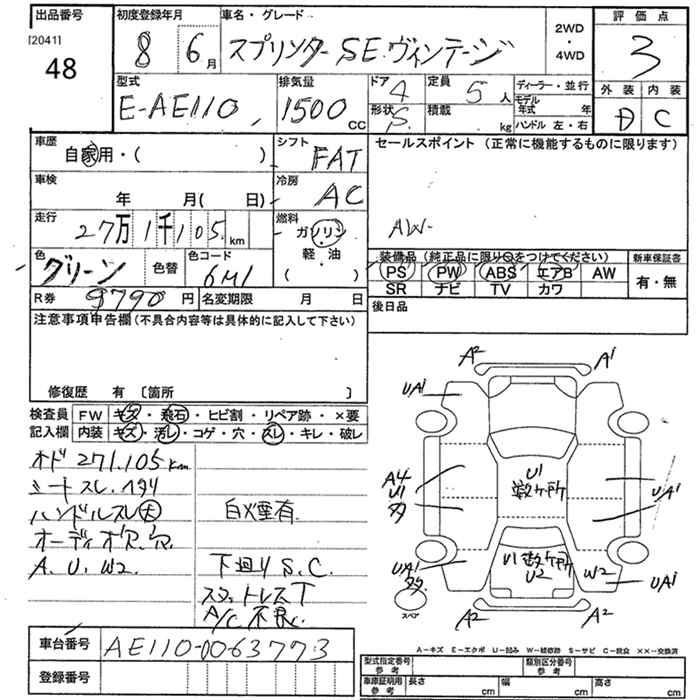 出品番号 初度登録年月 車名・グレード 2WD ・ 4WD 評価点
[2041]
48 8 6月 スプリンター SE.ヴィンテージ 3
型式 排気量 ドア 4 定員 5人 ディーラー・並行 外装 内装
E-AE110, 1500cc 形状 S 積載 kg モデル年式 年 D C
ハンドル 左・右
車歴 自家用・( ) シフト FAT セールスポイント (正常に機能するものに限ります)
車検 年 月( 日) 冷房 AC
走行 27万1千105km 燃料 ガソリン・軽油 ( ) AW-
色 グリーン 色替 色コード 6M1 装備品 (純正品に限り○をつけてください) 新車保証書
PS PW ABS エアB AW 有・無
R券 9790円 名変期限 月 日 SR ナビ TV カワ
注意事項申告欄 (不具合内容等は具体的に記入して下さい) 後日品
修復歴 有 [箇所 ]
検査員 FW キズ・飛石・ヒビ割・リペア跡・×要
記入欄 内装 キズ・汚レ・コゲ・穴・スレ・キレ・破レ
オド 271.105km
シートスレ.ヘタリ
ハンドルスレ大 白煙有
オーディオ欠.穴.
A.U.W2. 下廻りS.C.
T
A/C不良.
A2 A1
UA1
A4 U1 U1 数ヶ所 UA1
UA1 U1数ヶ所 U2 W2 UA1
スペア A2 A2
A-キズ E-エクボ U-凹み W-補修跡 S-サビ C-腐食 ××-交換済
車台番号 AE110-0063773
登録番号
型式指定番号 参考 類別区分番号 参考
車庫証明用 参考 長さ cm 幅 cm 高さ cm